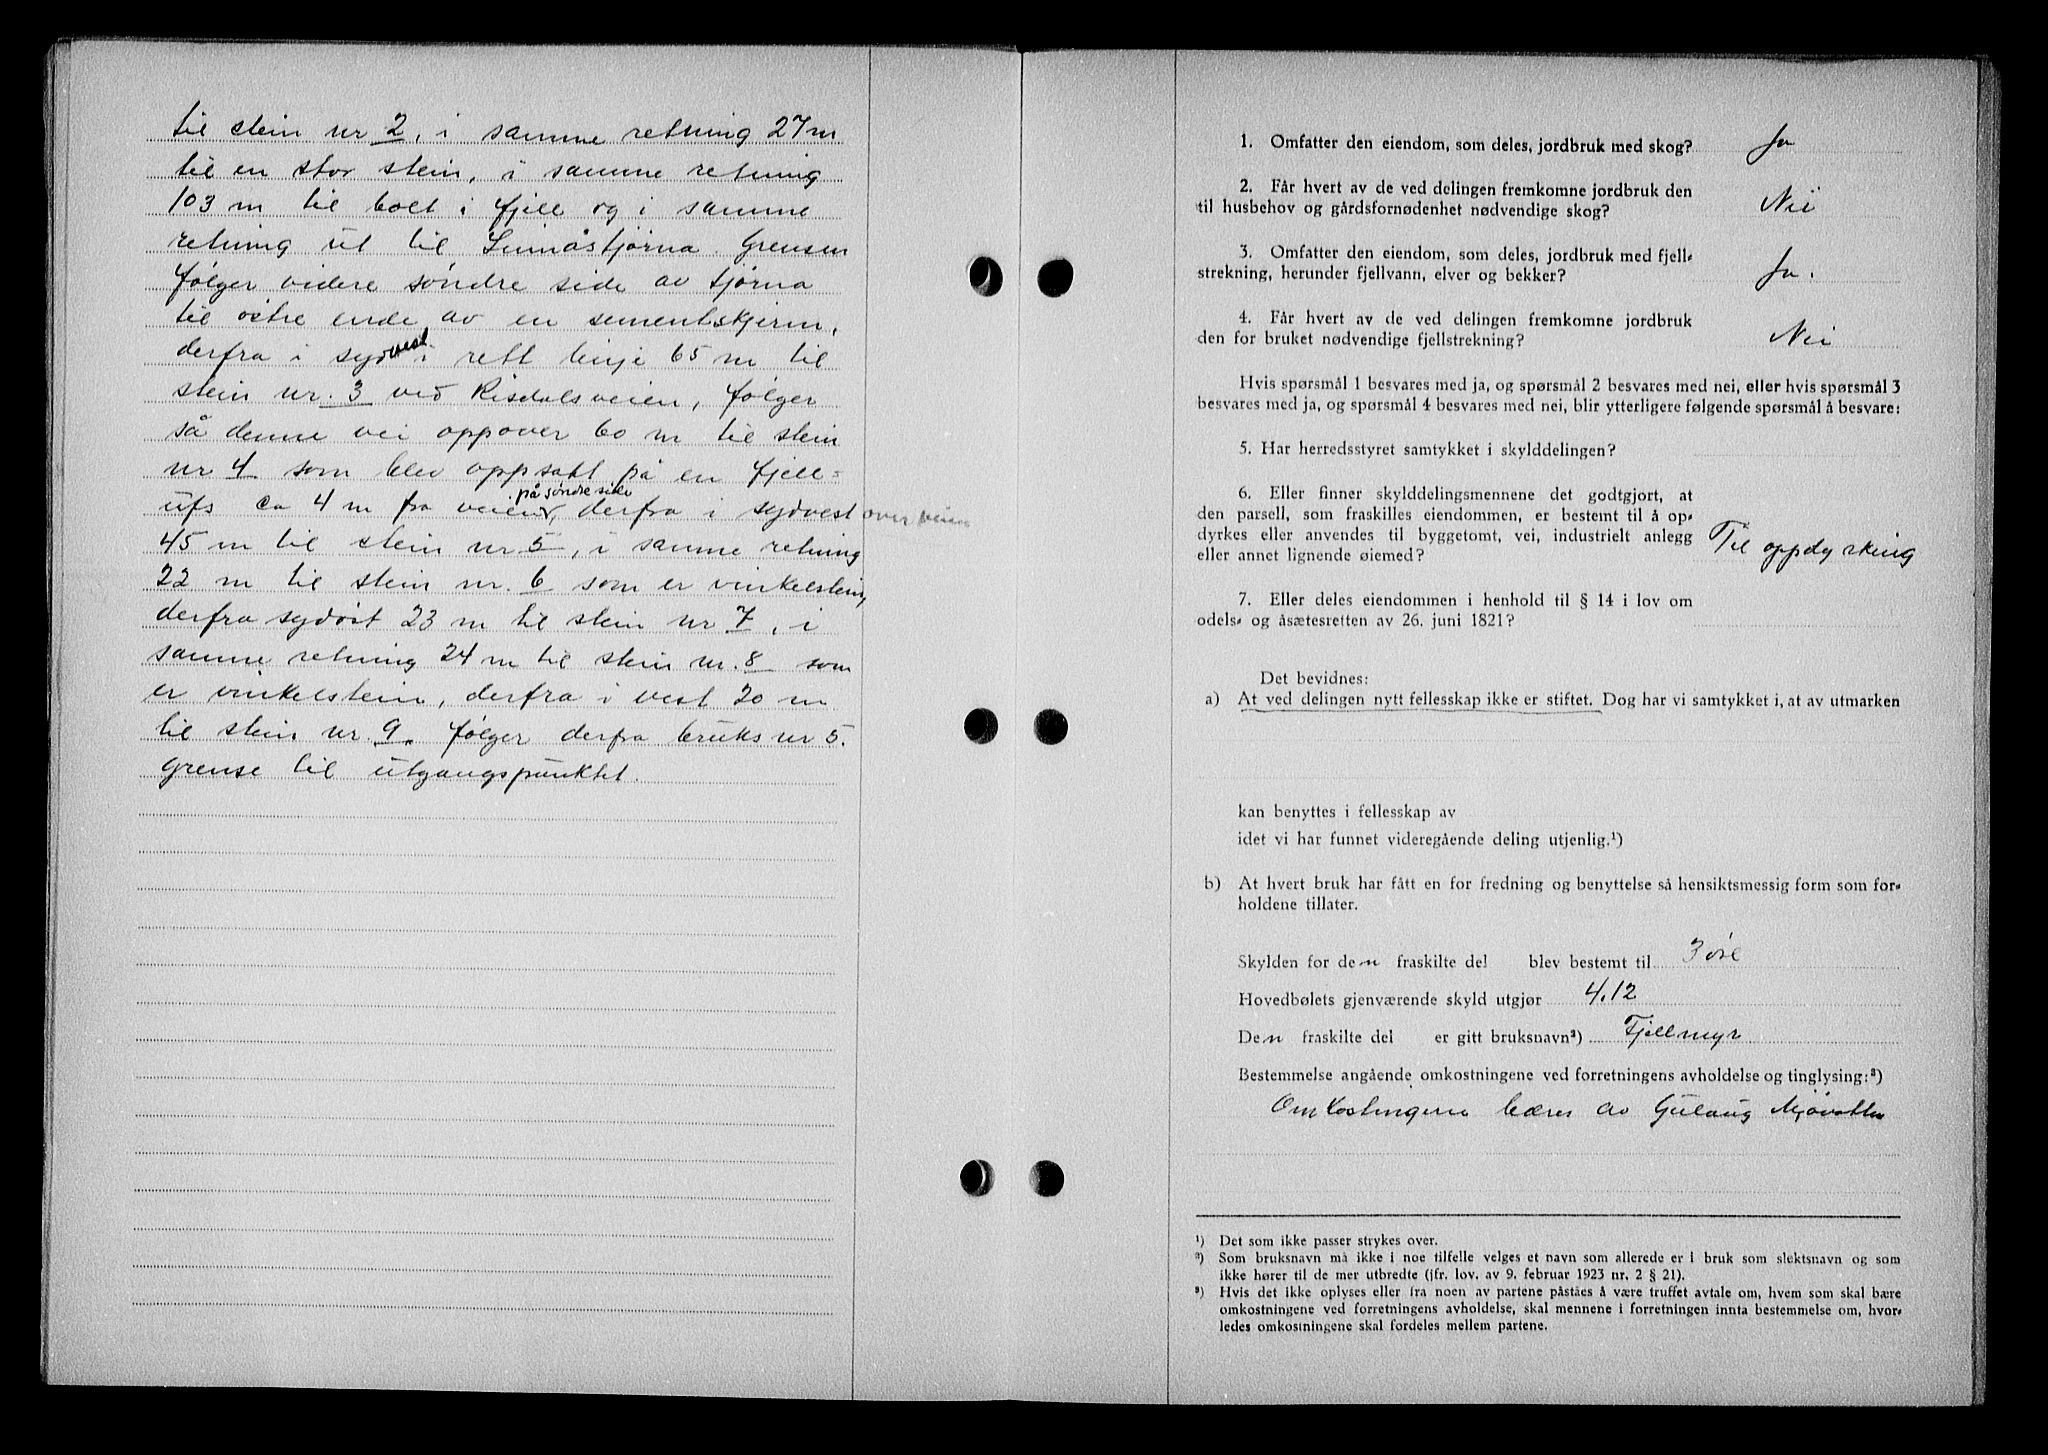 til stein nr 2, i samme retning 27 m
til en stor stein, i samme retning
103 m til bolt i fjell og i samme
retning ut til Linåstjørna. Grensen
følger videre søndre side av tjørna
til østre ende av en sementskjerm,
derfra i sydvest i rett linje 65 m til
stein nr. 3 ved Risdalsveien, følger
så denne vei oppover 60 m til stein
nr 4 som blev oppsatt på en fjell=
ufs ca 4 m fra veien på søndre side, derfra i sydvest over veien
45 m til stein nr 5, i samme retning
22 m til stein nr. 6 som er vinkelstein,
derfra sydøst 23 m til stein nr 7, i
samme retning 24 m til stein nr. 8 som
er vinkelstein, derfra i vest 20 m
til stein nr. 9. følger derfra bruks nr 5.
grense til utgangspunktet.
1. Omfatter den eiendom, som deles, jordbruk med skog? Ja
2. Får hvert av de ved delingen fremkomne jordbruk den
til husbehov og gårdsfornødenhet nødvendige skog? Nei
3. Omfatter den eiendom, som deles, jordbruk med fjell-
strekning, herunder fjellvann, elver og bekker? Ja.
4. Får hvert av de ved delingen fremkomne jordbruk
den for bruket nødvendige fjellstrekning? Nei
Hvis spørsmål 1 besvares med ja, og spørsmål 2 besvares med nei, eller hvis spørsmål 3
besvares med ja, og spørsmål 4 besvares med nei, blir ytterligere følgende spørsmål å besvare:
5. Har herredsstyret samtykket i skylddelingen?
6. Eller finner skylddelingsmennene det godtgjort, at
den parsell, som fraskilles eiendommen, er bestemt til å op-
dyrkes eller anvendes til byggetomt, vei, industrielt anlegg
eller annet lignende øiemed? Til oppdyrking
7. Eller deles eiendommen i henhold til § 14 i lov om
odels- og åsætesretten av 26. juni 1821?
Det bevidnes:
a) At ved delingen nytt fellesskap ikke er stiftet. Dog har vi samtykket i, at av utmarken
kan benyttes i fellesskap av
idet vi har funnet videregående deling utjenlig.¹)
b) At hvert bruk har fått en for fredning og benyttelse så hensiktsmessig form som for-
holdene tillater.
Skylden for den fraskilte del blev bestemt til 3 øre
Hovedbølets gjenværende skyld utgjør 4.12
Den fraskilte del er gitt bruksnavn²) Fjellmyr
Bestemmelse angående omkostningene ved forretningens avholdelse og tinglysing:³)
Omkostningene bæres av Gulaug Mjåvatn
¹) Det som ikke passer strykes over.
²) Som bruksnavn må ikke i noe tilfelle velges et navn som allerede er i bruk som slektsnavn og som
ikke hører til de mer utbredte (jfr. lov. av 9. februar 1923 nr. 2 § 21).
³) Hvis det ikke oplyses eller fra noen av partene påståes å være truffet avtale om, hvem som skal bære
omkostningene ved forretningens avholdelse, skal mennene i forretningen innta bestemmelse om, hvor-
ledes omkostningene skal fordeles mellem partene.